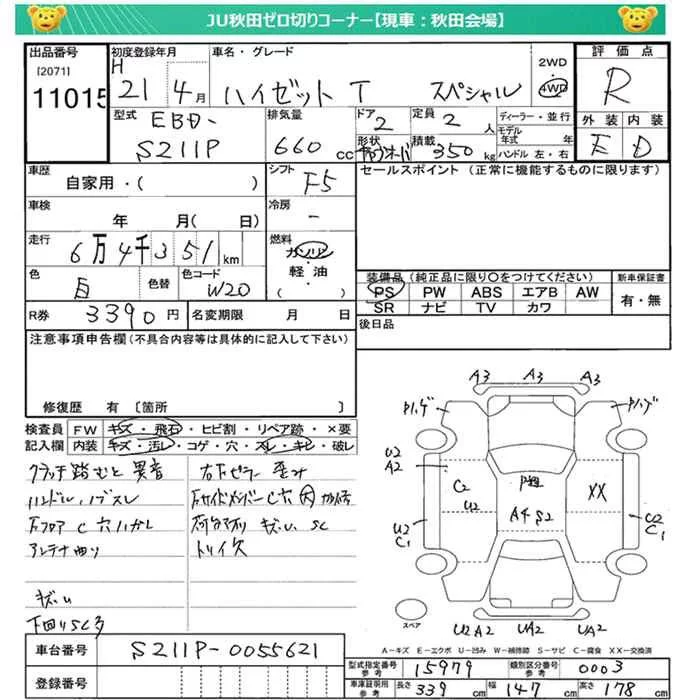 JU秋田ゼロ切りコーナー【現車：秋田会場】
出品番号 初度登録年月 車名・グレード 2WD 評価点
[2071] H 4WD
11015 21 4月 ハイゼット T スペシャル R
型式 排気量 ドア 定員 ディーラー・並行 外装 内装
EBD- 2 2人 モデル年式 年
S211P 660cc 形状 積載 350kg ハンドル 左・右 E D
車歴 シフト セールスポイント（正常に機能するものに限ります）
自家用・（ ） F5
車検 冷房
年 月（ 日） -
走行 燃料
6万4千351km ガソリン
軽油・（ ）
色 色替 色コード 装備品（純正品に限り〇をつけてください） 新車保証書
白 W20 PS PW ABS エアB AW 有・無
R券 3390円 名変期限 月 日 SR ナビ TV カワ
注意事項申告欄（不具合内容等は具体的に記入して下さい） 後日品
修復歴 有 〔箇所 〕
検査員 FW キズ・飛石・ヒビ割・リペア跡・×要
記入欄 内装 キズ・汚レ・コゲ・穴・スレ・キレ・破レ
クラッチ踏むと異音
ハンドル、ノブスレ
アンテナ曲り
キズ、U
下回りSC多
トリイ欠
A3 A3 A3
U2
A2
C2
U2
A4 S2
XX
U2
C1
U2
C1
スペア U2A2 UA2 UA2
A－キズ E－エクボ U－凹み W－補修跡 S－サビ C－腐食 XX－交換済
車台番号 S211P-0055621
型式指定番号 参考 15979 類別区分番号 参考 0003
登録番号 車庫証明用 参考 長さ 339cm 幅 147cm 高さ 178cm